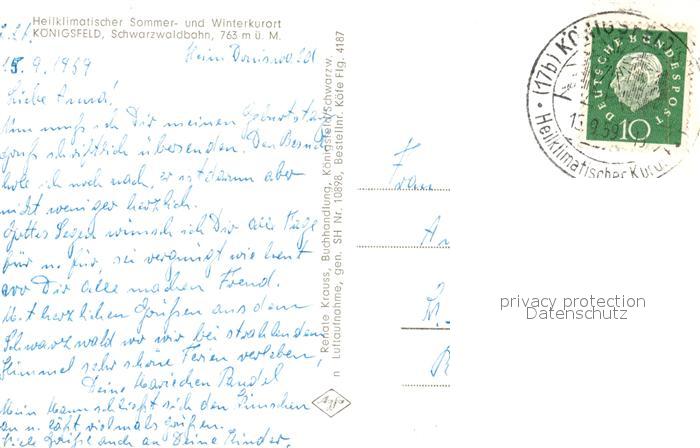 Heilklimatischer Sommer- und Winterkurort
KÖNIGSFELD, Schwarzwaldbahn, 763 m ü. M.
15.9.1959
Liebe Anna!
Nun muß ich Dir meinen Geburtstags
gruß schriftlich übersenden. Den Besuch
hole ich noch nach, er ist darum aber
nicht weniger herzlich.
Gottes Segen wünsch ich Dir alle Tage
für u. für, sei vergnügt wie heut
wo Dir alle machen Freud.
Mit herzlichen Grüßen aus dem
Schwarzwald wo wir bei strahlendem
Himmel sehr schöne Ferien verleben,
Deine Mariechen
Mein Mann schließt sich den Wünschen
an u. läßt vielmals grüßen.
Viele Grüße auch an Deine Kinder.
Renate Krauss, Buchhandlung, Königsfeld/Schwarzw.
Luftaufnahme, gen. SH Nr. 10898, Bestellnr. Köte Flg. 4187
Frau
(17b) KÖNIGSFELD
15.9.59
Heilklimatischer Kurort
DEUTSCHE BUNDESPOST
10
privacy protection
Datenschutz